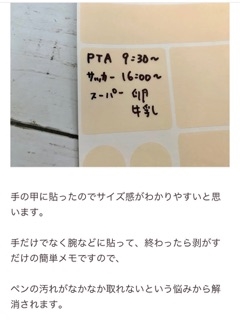 PTA 9:30〜
サッカー 16:00〜
スーパー 卵
牛乳
手の甲に貼ったのでサイズ感がわかりやすいと思
います。
手だけでなく腕などに貼って、終わったら剥がす
だけの簡単メモですので、
ペンの汚れがなかなか取れないという悩みから解
消されます。